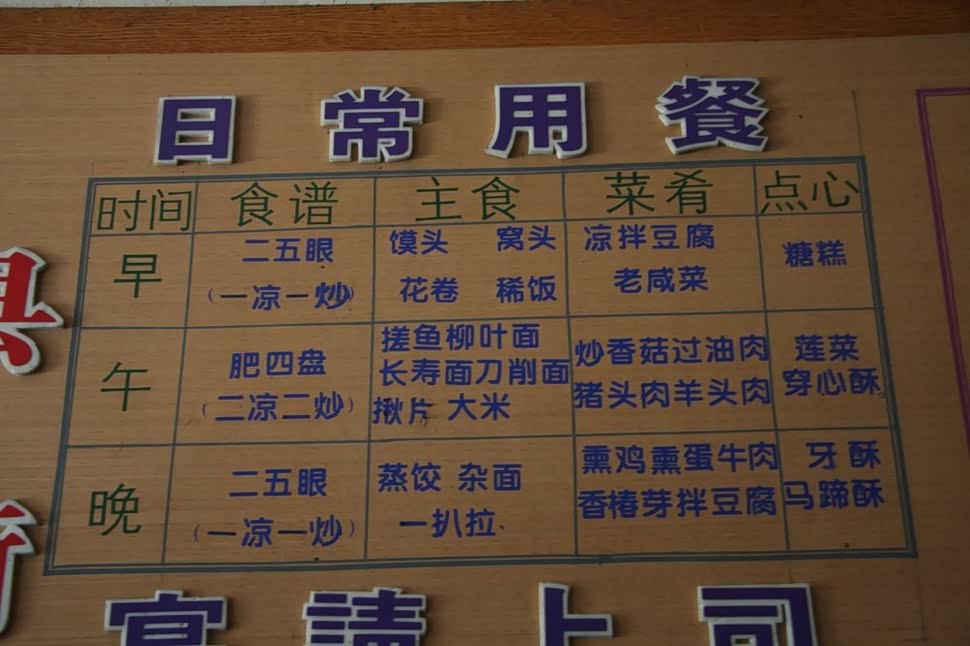 日常用餐
时间 食谱 主食 菜肴 点心
早 二五眼 馍头 窝头 凉拌豆腐 糖糕
（一凉一炒） 花卷 稀饭 老咸菜
午 肥四盘 搓鱼柳叶面 炒香菇过油肉 莲菜
（二凉二炒） 长寿面刀削面 猪头肉羊头肉 穿心酥
揪片 大米
晚 二五眼 蒸饺 杂面 熏鸡熏蛋牛肉 牙酥
（一凉一炒） 一扒拉 香椿芽拌豆腐 马蹄酥
宴請上司